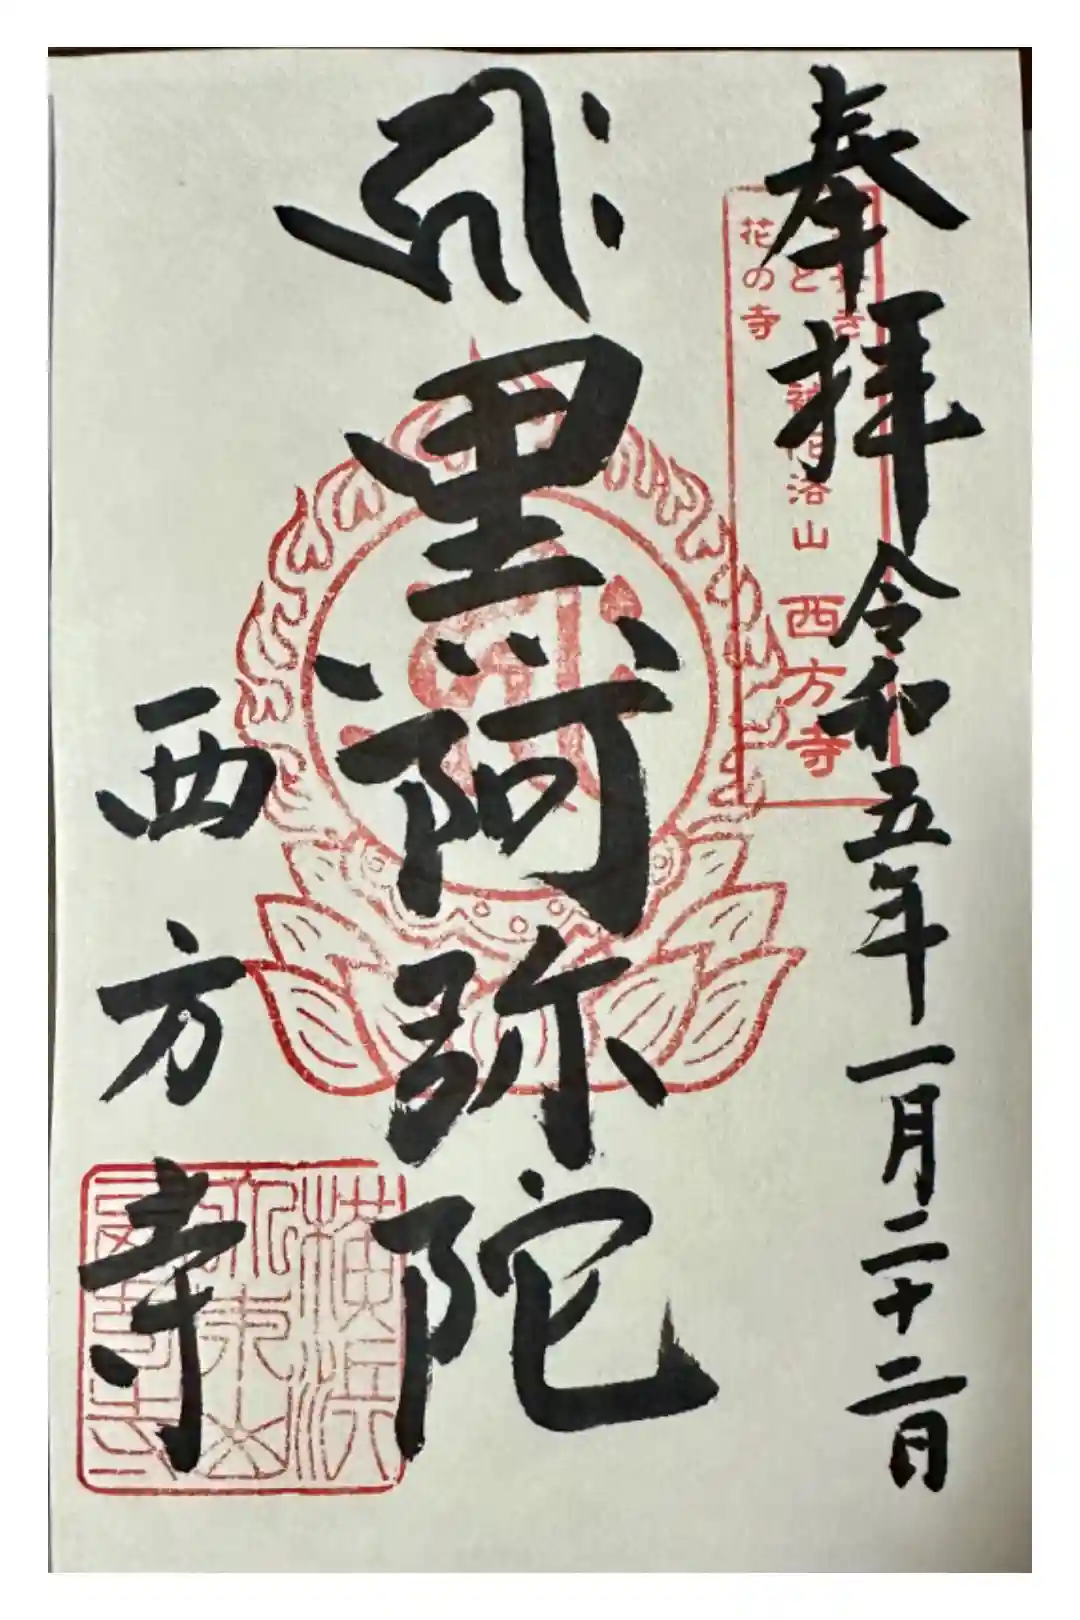 奉拝 令和五年一月二十二日
花の寺
洛山 西方寺
キリーク
黒阿弥陀
西方寺
横浜